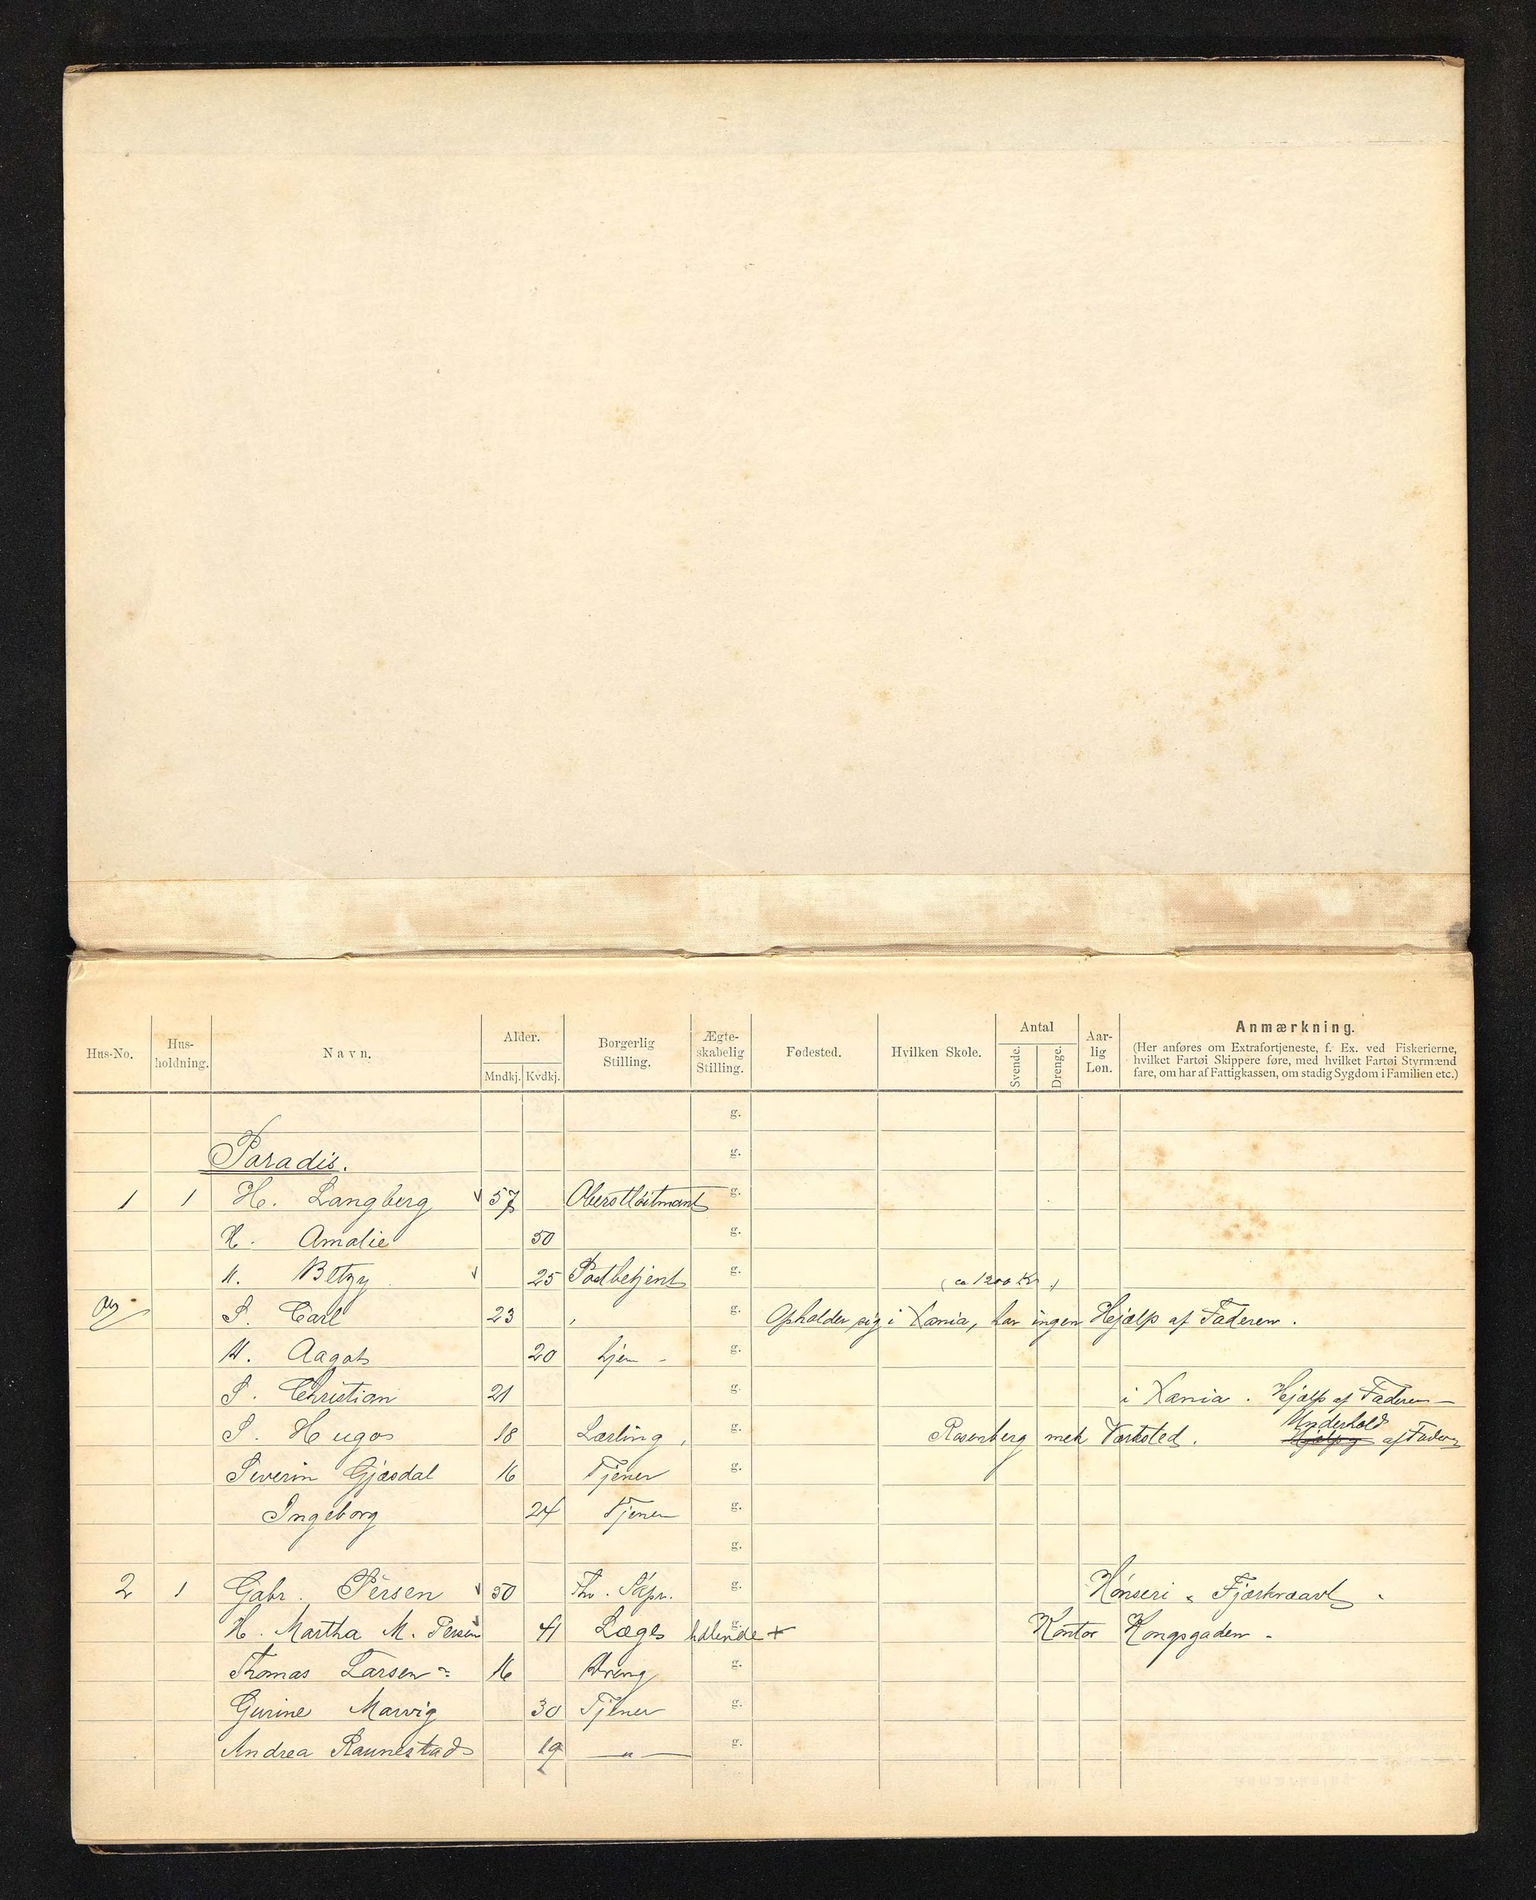 Hus-No. Hus-holdning. Navn. Alder. Mndkj. Kvdkj. Borgerlig Stilling. Ægte-skabelig Stilling. Fødested. Hvilken Skole. Antal Svende. Drenge. Aar-lig Løn. Anmærkning.
(Her anføres om Extrafortjeneste, f. Ex. ved Fiskerierne,
hvilket Fartøi Skippere føre, med hvilket Fartøi Styrmænd
fare, om har af Fattigkassen, om stadig Sygdom i Familien etc.)
g.
Paradis. g.
1 1 H. Langberg 57 Oberstløitnant g.
H. Amalie 50 g.
H. Betzy 25 Postbetjent g. (ca 1200 Kr.)
S. Carl 23 g. Opholder sig i Xania, har ingen Hjælp af Faderen.
H. Aagot 20 hjem g.
S. Christian 21 g. i Xania. Hjælp af Faderen
S. Hugo 18 Lærling, g. Rosenberg mek Værksted. Underhold af Faderen
Severin Gjæsdal 16 Tjener g.
Ingeborg 24 Tjener g.
g.
2 1 Gabr. Persen 50 g. Hønseri & Fjærkræavl.
H. Martha M. Persen 41 Læges g. + Kontor Kongsgaden.
Thomas Larsen 16 Dreng g.
Gurine Marvig 30 Tjener g.
Andrea Raunestad 19 — " — g.